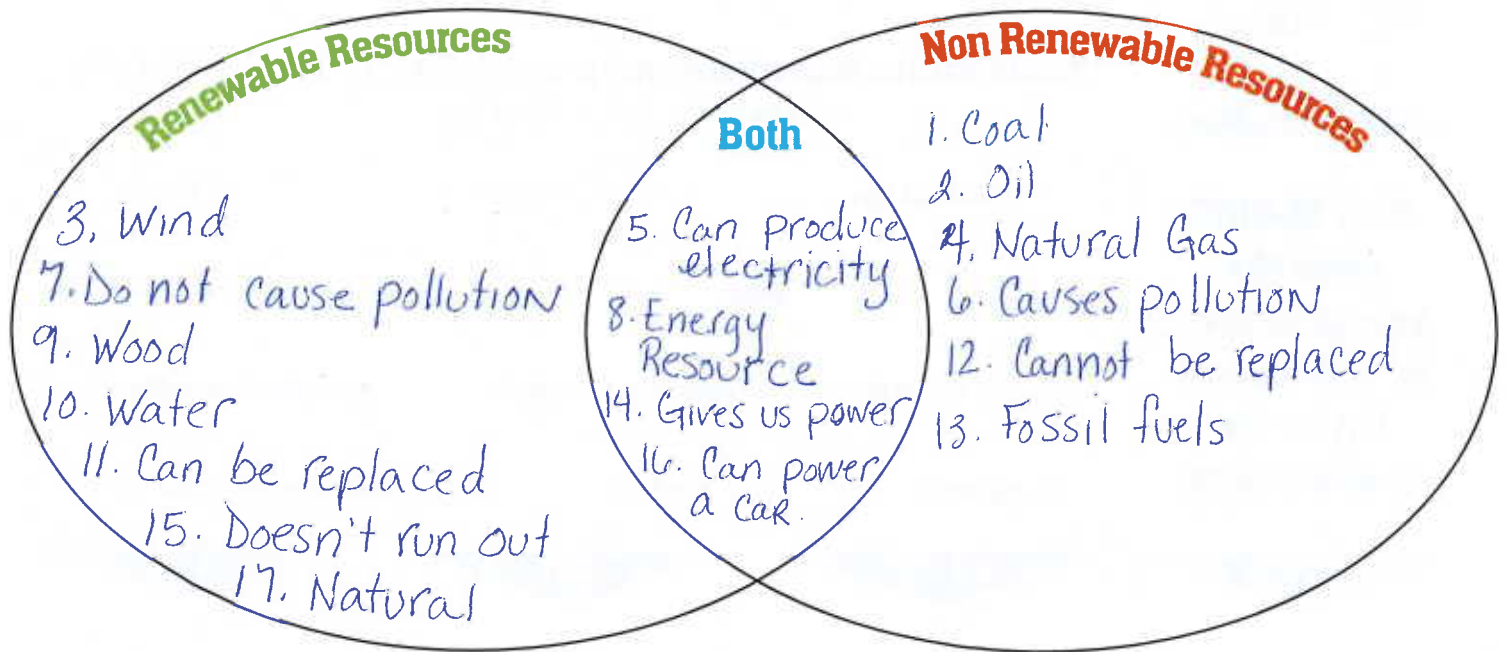 Renewable Resources
3. Wind
7. Do not cause pollution
9. Wood
10. Water
11. Can be replaced
15. Doesn't run out
17. Natural
Both
5. Can produce
electricity
8. Energy
Resource
14. Gives us power
16. Can power
a car.
Non Renewable Resources
1. Coal
2. Oil
4. Natural Gas
6. Causes pollution
12. Cannot be replaced
13. Fossil fuels